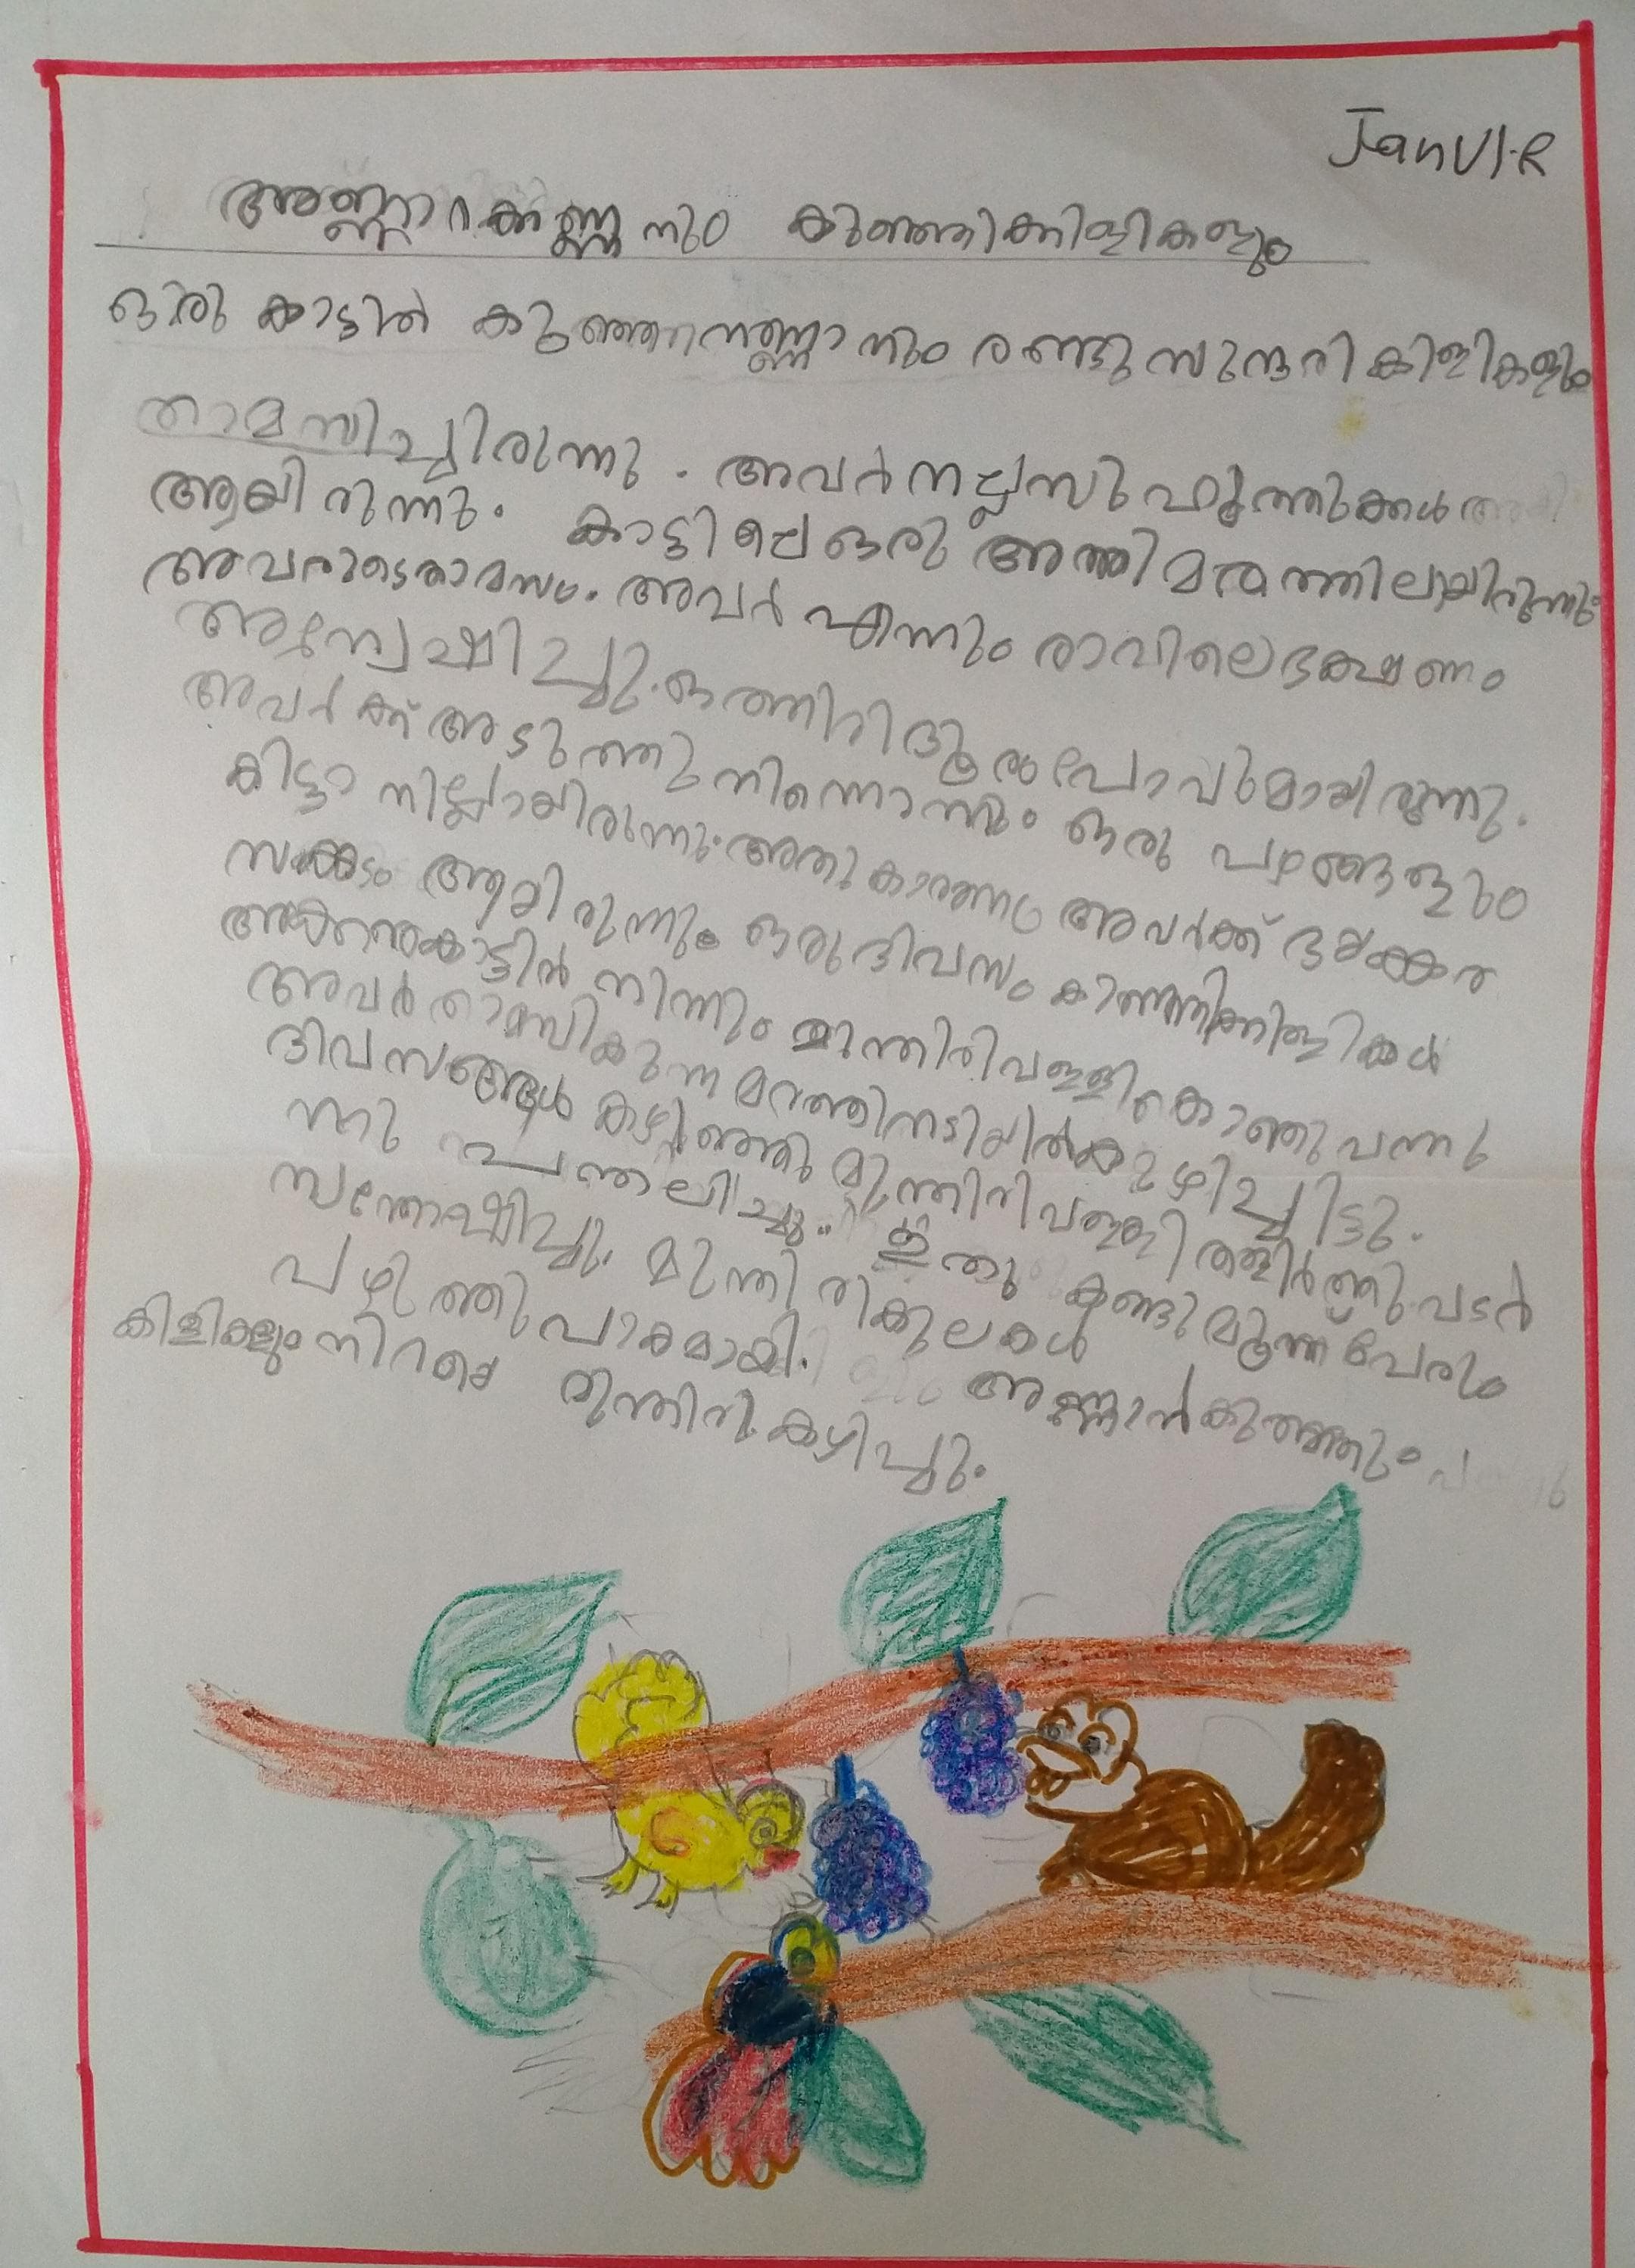 Janvi.R
അണ്ണാറക്കണ്ണനും കുഞ്ഞിക്കിളികളും
ഒരു കാട്ടിൽ കുഞ്ഞനണ്ണാനും രണ്ടു സുന്ദരി കിളികളും
താമസിച്ചിരുന്നു. അവർ നല്ല സുഹൃത്തുക്കൾ
ആയിരുന്നു. കാട്ടിലെ ഒരു അത്തി മരത്തിലായിരുന്നു
അവരുടെ താമസം. അവർ എന്നും രാവിലെ ഭക്ഷണം
അന്വേഷിച്ചു. ഒത്തിരി ദൂരം പോവുമായിരുന്നു.
അവർക്ക് അടുത്തു നിന്നൊന്നും ഒരു പഴങ്ങളും
കിട്ടാനില്ലായിരുന്നു. അതു കാരണം അവർക്ക് ഭയങ്കര
സങ്കടം ആയിരുന്നു. ഒരു ദിവസം കുഞ്ഞിക്കിളികൾ
കാട്ടിൽ നിന്നും മുന്തിരിവള്ളി കൊണ്ടു വന്നു
അവർ താമസികുന്ന മറത്തിനടിയിൽ കുഴിച്ചിട്ടു.
ദിവസങ്ങൾ കഴിഞ്ഞു മുന്തിരിവള്ളി തളിർത്തു പടർ
ന്നു പന്തലിച്ചു. ഇതു കണ്ടു മൂന്ന് പേരും
സന്തോഷിച്ചു. മുന്തിരിക്കുലകൾ
പഴുത്തു പാകമായി. അണ്ണാൻകുഞ്ഞും
കിളികളും നിറയെ മുന്തിരി കഴിച്ചു.